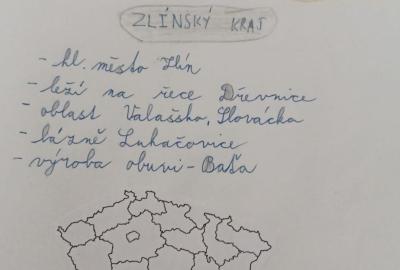 ZLÍNSKÝ KRAJ
- hl. město Zlín
- leží na řece Dřevnice
- oblast Valašsko, Slovácka
- lázně Luhačovice
- výroba obuvi - Baťa